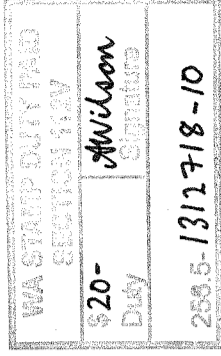 WA STAMP DUTY PAID
SECTION 112V
$20-
Duty
AWilson
Signature
258.5- 1312718-10